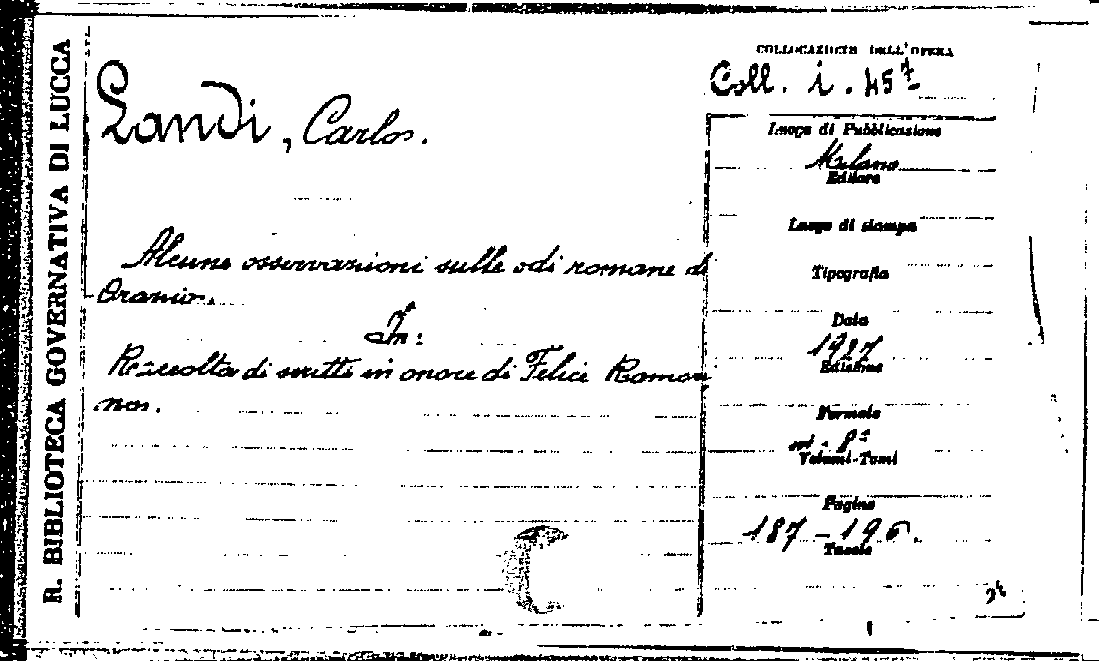 R. BIBLIOTECA GOVERNATIVA DI LUCCA
Landi, Carlos.
Alcune osservazioni sulle odi romane di
Orazio.
In:
Raccolta di scritti in onore di Felice Ramor
no.
COLLOCAZIONE DELL'OPERA
Coll. i. 457
Luogo di Pubblicazione
Milano
Editore
Luogo di stampa
Tipografia
Data
1927
Edizione
Formato
in-8°
Volumi-Tomi
Pagine
187-196.
Tavole